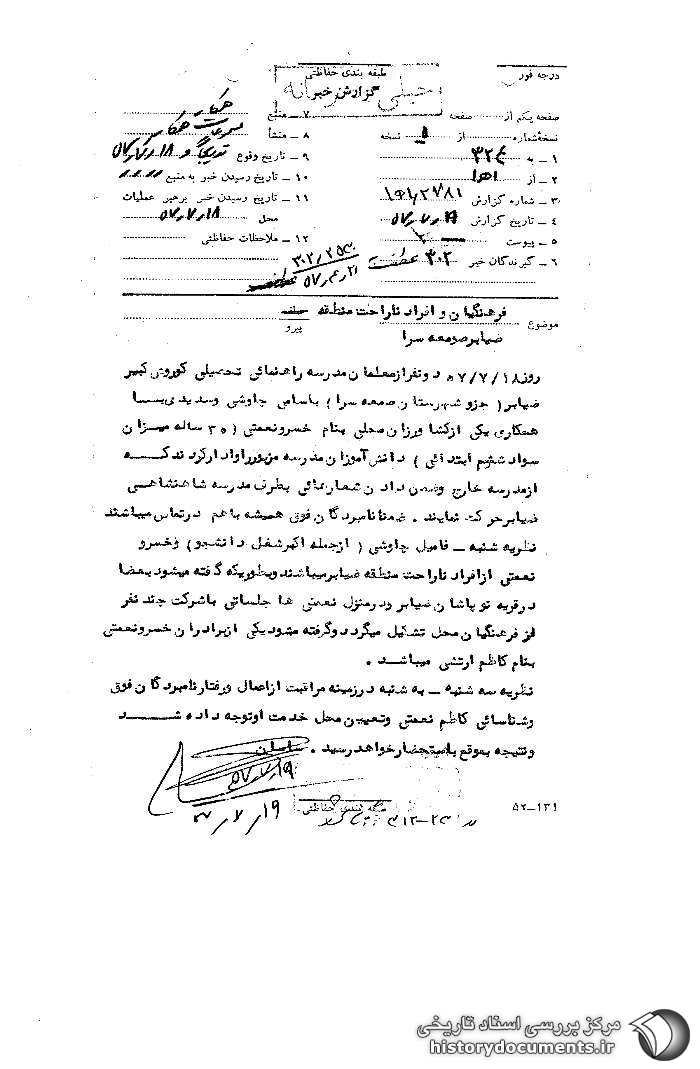 درجه فوریت
طبقه بندی حفاظتی
خیلی محرمانه
گزارش خبر
صفحه یکم از صفحه
نسخهشماره از نسخه
۱ ـ به ۳۲۴
۲ ـ از
۳ ـ شماره گزارش
۴ ـ تاریخ گزارش
۵ ـ پیوست
۶ ـ گیرندگان خبر ۳۰۲
۷ ـ منبع همکار
۸ ـ منشأ
۹ ـ تاریخ وقوع
۱۰ ـ تاریخ رسیدن خبر به منبع
۱۱ ـ تاریخ رسیدن خبر برهبر عملیات
محل
۱۲ ـ ملاحظات حفاظتی
موضوع فرهنگیان و افراد ناراحت منطقه
ضیابر صومعه سرا
پیرو
روز ۵۷/۷/۱۸ دو نفر از معلمان مدرسه راهنمائی تحصیلی کوروش کبیر
ضیابر ( جزو شهرستان صمعه سرا ) باسامی چاوشی وسدیدی بسا
همکاری یکی ازکشا ورزان محلی بنام خسرونعمتی ( ۳۰ ساله میزان
سواد ششم ابتدائی ) دانش آموزان مدرسه مزبورراوادارکردندکه
ازمدرسه خارج وضمن دادن شعارهائی بطرف مدرسه شاهنشاهی
ضیابرحرکت نمایند . ضمنا نامبردگان فوق همیشه باهم درتماس میباشند
نظریه شنبه ـ فامیل چاوشی ( ازجمله اکبرشغل دانشجو ) وخسرو
نعمتی ازافراد ناراحت منطقه ضیابرمیباشند وبطوریکه گفته میشود بعضا
درقریه نوپاشان ضیابر ودرمنزل نعمتی ها جلساتی باشرکت چند نفر
از فرهنگیان محل تشکیل میگردد وگفته میشود یکی ازبرادران خسرونعمتی
بنام کاظم ارتشی میباشد .
نظریه سه شنبه ـ به شنبه درزمینه مراقبت ازاعمال ورفتارنامبردگان فوق
وشناسائی کاظم نعمتی وتعیین محل خدمت اوتوجه داده شد
ونتیجه بموقع باستحضارخواهد رسید . سامان
۵۷/۷/۱۹
طبقه بندی حفاظتی
۵۲ـ۱۳۱
مرکز بررسی اسناد تاریخی
historydocuments.ir